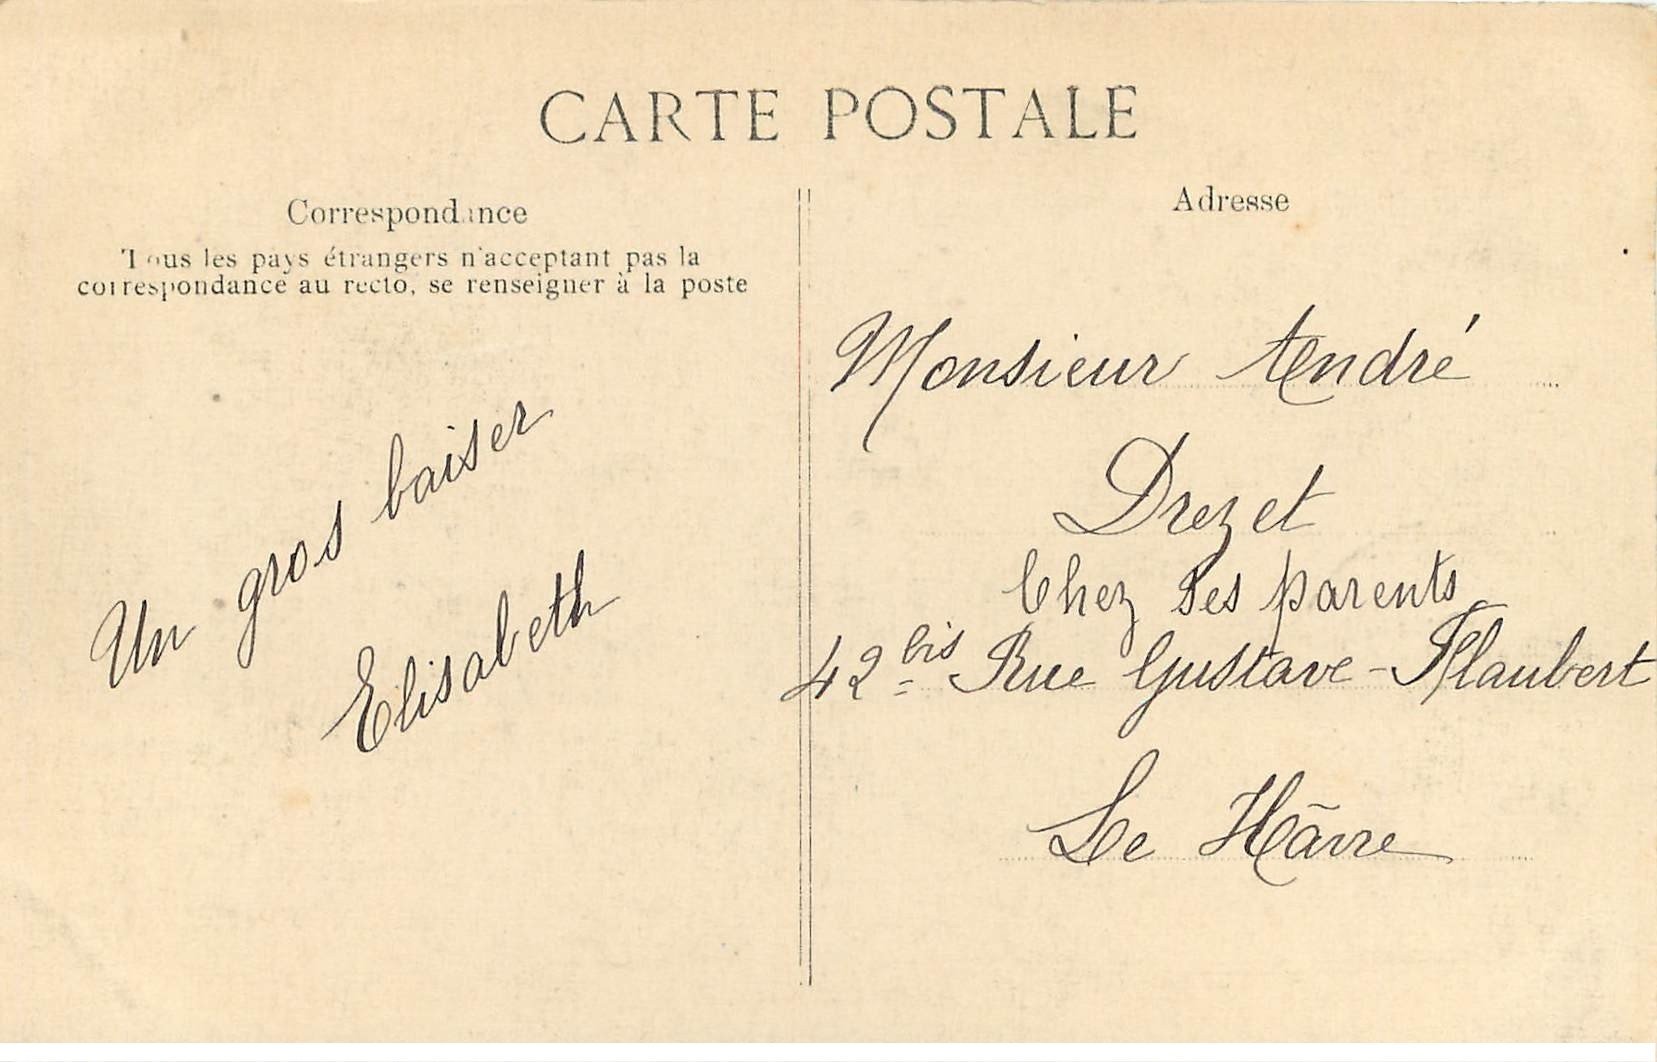 CARTE POSTALE
Correspondance
Tous les pays étrangers n'acceptant pas la
correspondance au recto, se renseigner à la poste
Un gros baiser
Elisabeth
Adresse
Monsieur André
Drezet
Chez ses parents
42 bis Rue Gustave-Flaubert
Le Hâvre